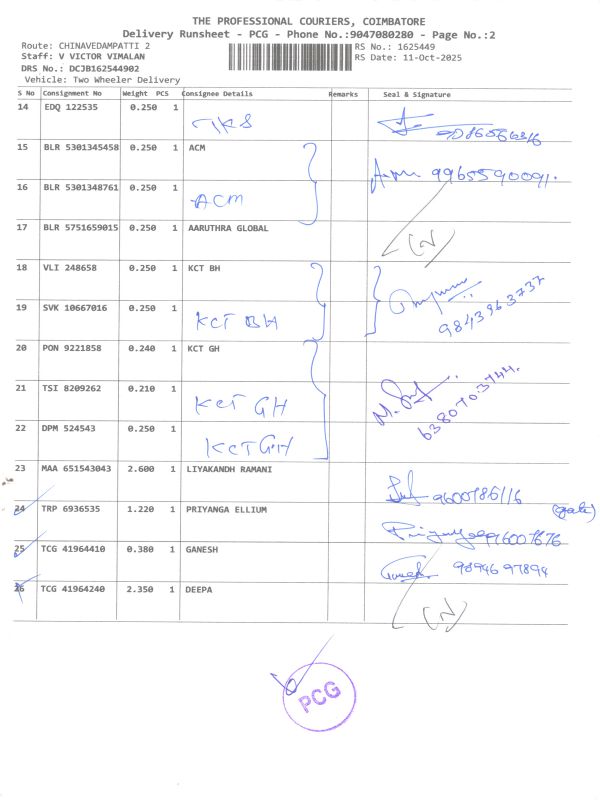 THE PROFESSIONAL COURIERS, COIMBATORE
Delivery Runsheet - PCG - Phone No.:9047080280 - Page No.:2
Route: CHINAVEDAMPATTI 2 RS No.: 1625449
Staff: V VICTOR VIMALAN RS Date: 11-Oct-2025
DRS No.: DCJB162544902
Vehicle: Two Wheeler Delivery
S No Consignment No Weight PCS Consignee Details Remarks Seal & Signature
14 EDQ 122535 0.250 1
15 BLR 5301345458 0.250 1 ACM
9965590091.
16 BLR 5301348761 0.250 1
ACM
17 BLR 5751659015 0.250 1 AARUTHRA GLOBAL
(N)
18 VLI 248658 0.250 1 KCT BH
9843963737
19 SVK 10667016 0.250 1
KCT BH
20 PON 9221858 0.240 1 KCT GH
6380703744.
21 TSI 8209262 0.210 1
KCT GH
22 DPM 524543 0.250 1
KCT GH
23 MAA 651543043 2.600 1 LIYAKANDH RAMANI
9600786116
24 TRP 6936535 1.220 1 PRIYANGA ELLIUM
(gate)
25 TCG 41964410 0.380 1 GANESH
Ganesh 9894697894
26 TCG 41964240 2.350 1 DEEPA
(N)
PCG